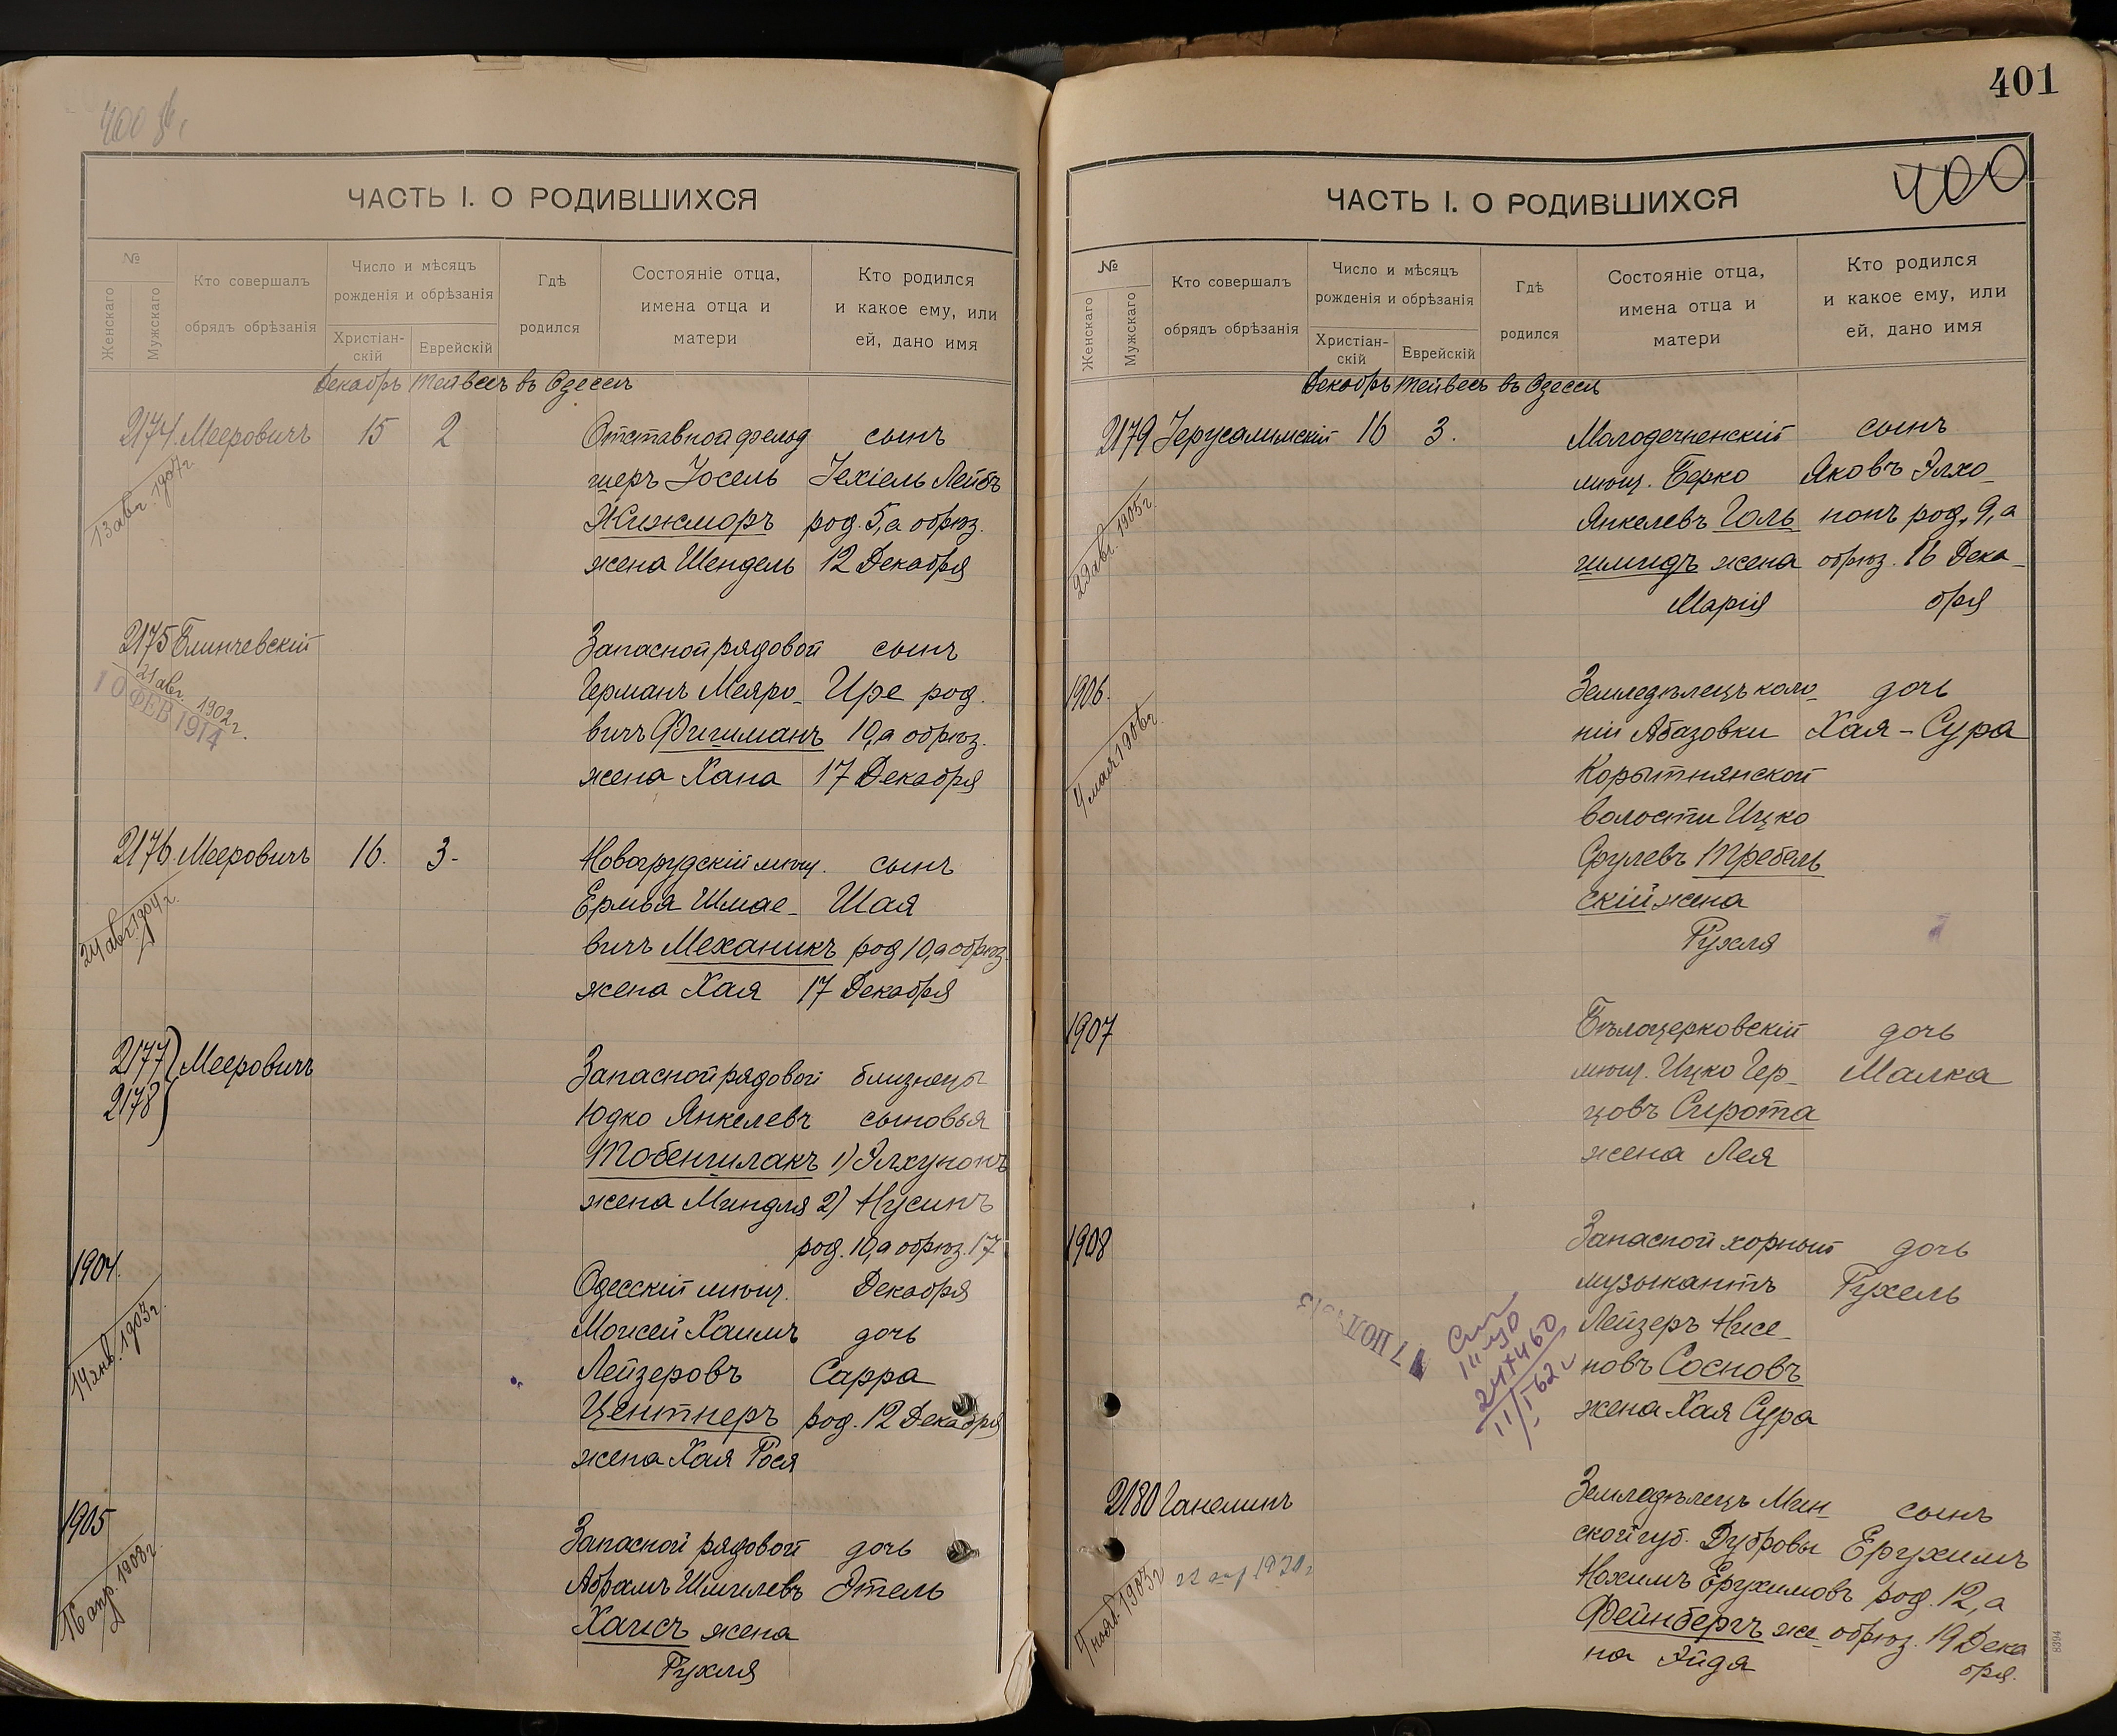 400 об.
ЧАСТЬ I. О РОДИВШИХСЯ
№
Женскаго
Мужскаго
Кто совершалъ
обрядъ обрѣзанія
Число и мѣсяцъ
рожденія и обрѣзанія
Христіан-
скій
Еврейскій
Гдѣ
родился
Состояніе отца,
имена отца и
матери
Кто родился
и какое ему, или
ей, дано имя
Декабрь Тейвесъ въ Одессѣ
2174. Мееровичъ 15 2 Отставной фельд сынъ
шеръ Іосель Іехіель Лейбъ
Жижморъ род. 5, а обрѣз.
жена Шендель 12 Декабря
13 авг. 1907г.
2175 Блинчевскій Запасной рядовой сынъ
Германъ Меяро- Ире род.
вичъ Фишманъ 10, а обрѣз.
жена Хана 17 Декабря
21 авг. 1902г.
10 ФЕВ 1914
2176. Мееровичъ 16. 3- Новогрудскій мѣщ. сынъ
Ермья Шмае- Шая
вичъ Механикъ род 10, а обрѣз.
жена Хая 17 Декабря
24 авг. 1904г.
2177 Мееровичъ Запасной рядовой близнецы
2178 Юдко Янкелевъ сыновья
Тобеншлакъ 1) Элхунонъ
жена Миндля 2) Нусинъ
род. 10, а обрѣз. 17
1904. Одесскій мѣщ. Декабря
Моисей Хаимъ дочь
Лейзеровъ Сарра
Центнеръ род. 12 Декабря
жена Хая Рося
14 янв. 1903г.
1905 Запасной рядовой дочь
Абрамъ Шмилевъ Этель
Хаисъ жена
Рухля
16 апр. 1908г.
401
400
ЧАСТЬ I. О РОДИВШИХСЯ
№
Женскаго
Мужскаго
Кто совершалъ
обрядъ обрѣзанія
Число и мѣсяцъ
рожденія и обрѣзанія
Христіан-
скій
Еврейскій
Гдѣ
родился
Состояніе отца,
имена отца и
матери
Кто родился
и какое ему, или
ей, дано имя
Декабрь Тейвесъ въ Одессѣ
2179 Іерусалимскій 16 3. Молодечненскій сынъ
мѣщ. Берко Яковъ Элхо-
Янкелевъ Голь нонъ род. 9, а
шмидъ жена обрѣз. 16 Дека-
Марія бря
29 авг. 1905г.
1906. Земледѣлецъ коло- дочь
ніи Абазовки Хая-Сура
Корытнянской
волости Ицко
Срулевъ Требель
скій жена
Рухля
4 мая 1906г.
1907 Бѣлоцерковскій дочь
мѣщ. Ицко Гер- Малка
цовъ Сирота
жена Лея
1908 Запасной хорный дочь
музыкантъ Рухель
Лейзеръ Нисе-
новъ Сосновъ
жена Хая Сура
2180 Ганелинъ Земледѣлецъ Мин- сынъ
ской губ. Дубровы Ерухимъ
Нохимъ Ерухимовъ род. 12, а
Фейнбергъ же- обрѣз. 19 Дека
на Эйдя бря.
7 нояб. 1903г.
8394